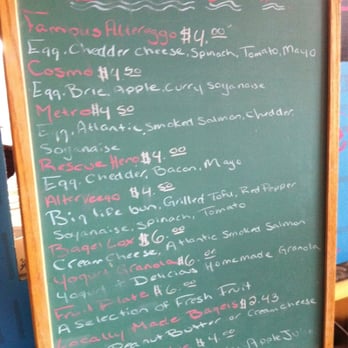 Famous Altereggo $4.00
Egg, Chedder Cheese, Spinach, Tomato, Mayo
Cosmo $4.50
Egg, Brie, Apple, Curry Soyanaise
Metro $4.50
Egg, Atlantic Smoked Salmon, Chedder,
Soyanaise
Rescue Hero $4.00
Egg, Chedder, Bacon, Mayo
Alterveego $4.50
Big life bun, Grilled Tofu, Red Pepper
Soyanaise, Spinach, Tomato
Bagel Lox $6.00
Cream Cheese, Atlantic Smoked Salmon
Yogurt Granola $6.00
Yogurt + Delicious Homemade Granola
Fruit Plate $6.00
A Selection of Fresh Fruit
Locally Made Bagels $2.43
Peanut Butter or Cream Cheese
$4.00
Apple Juice